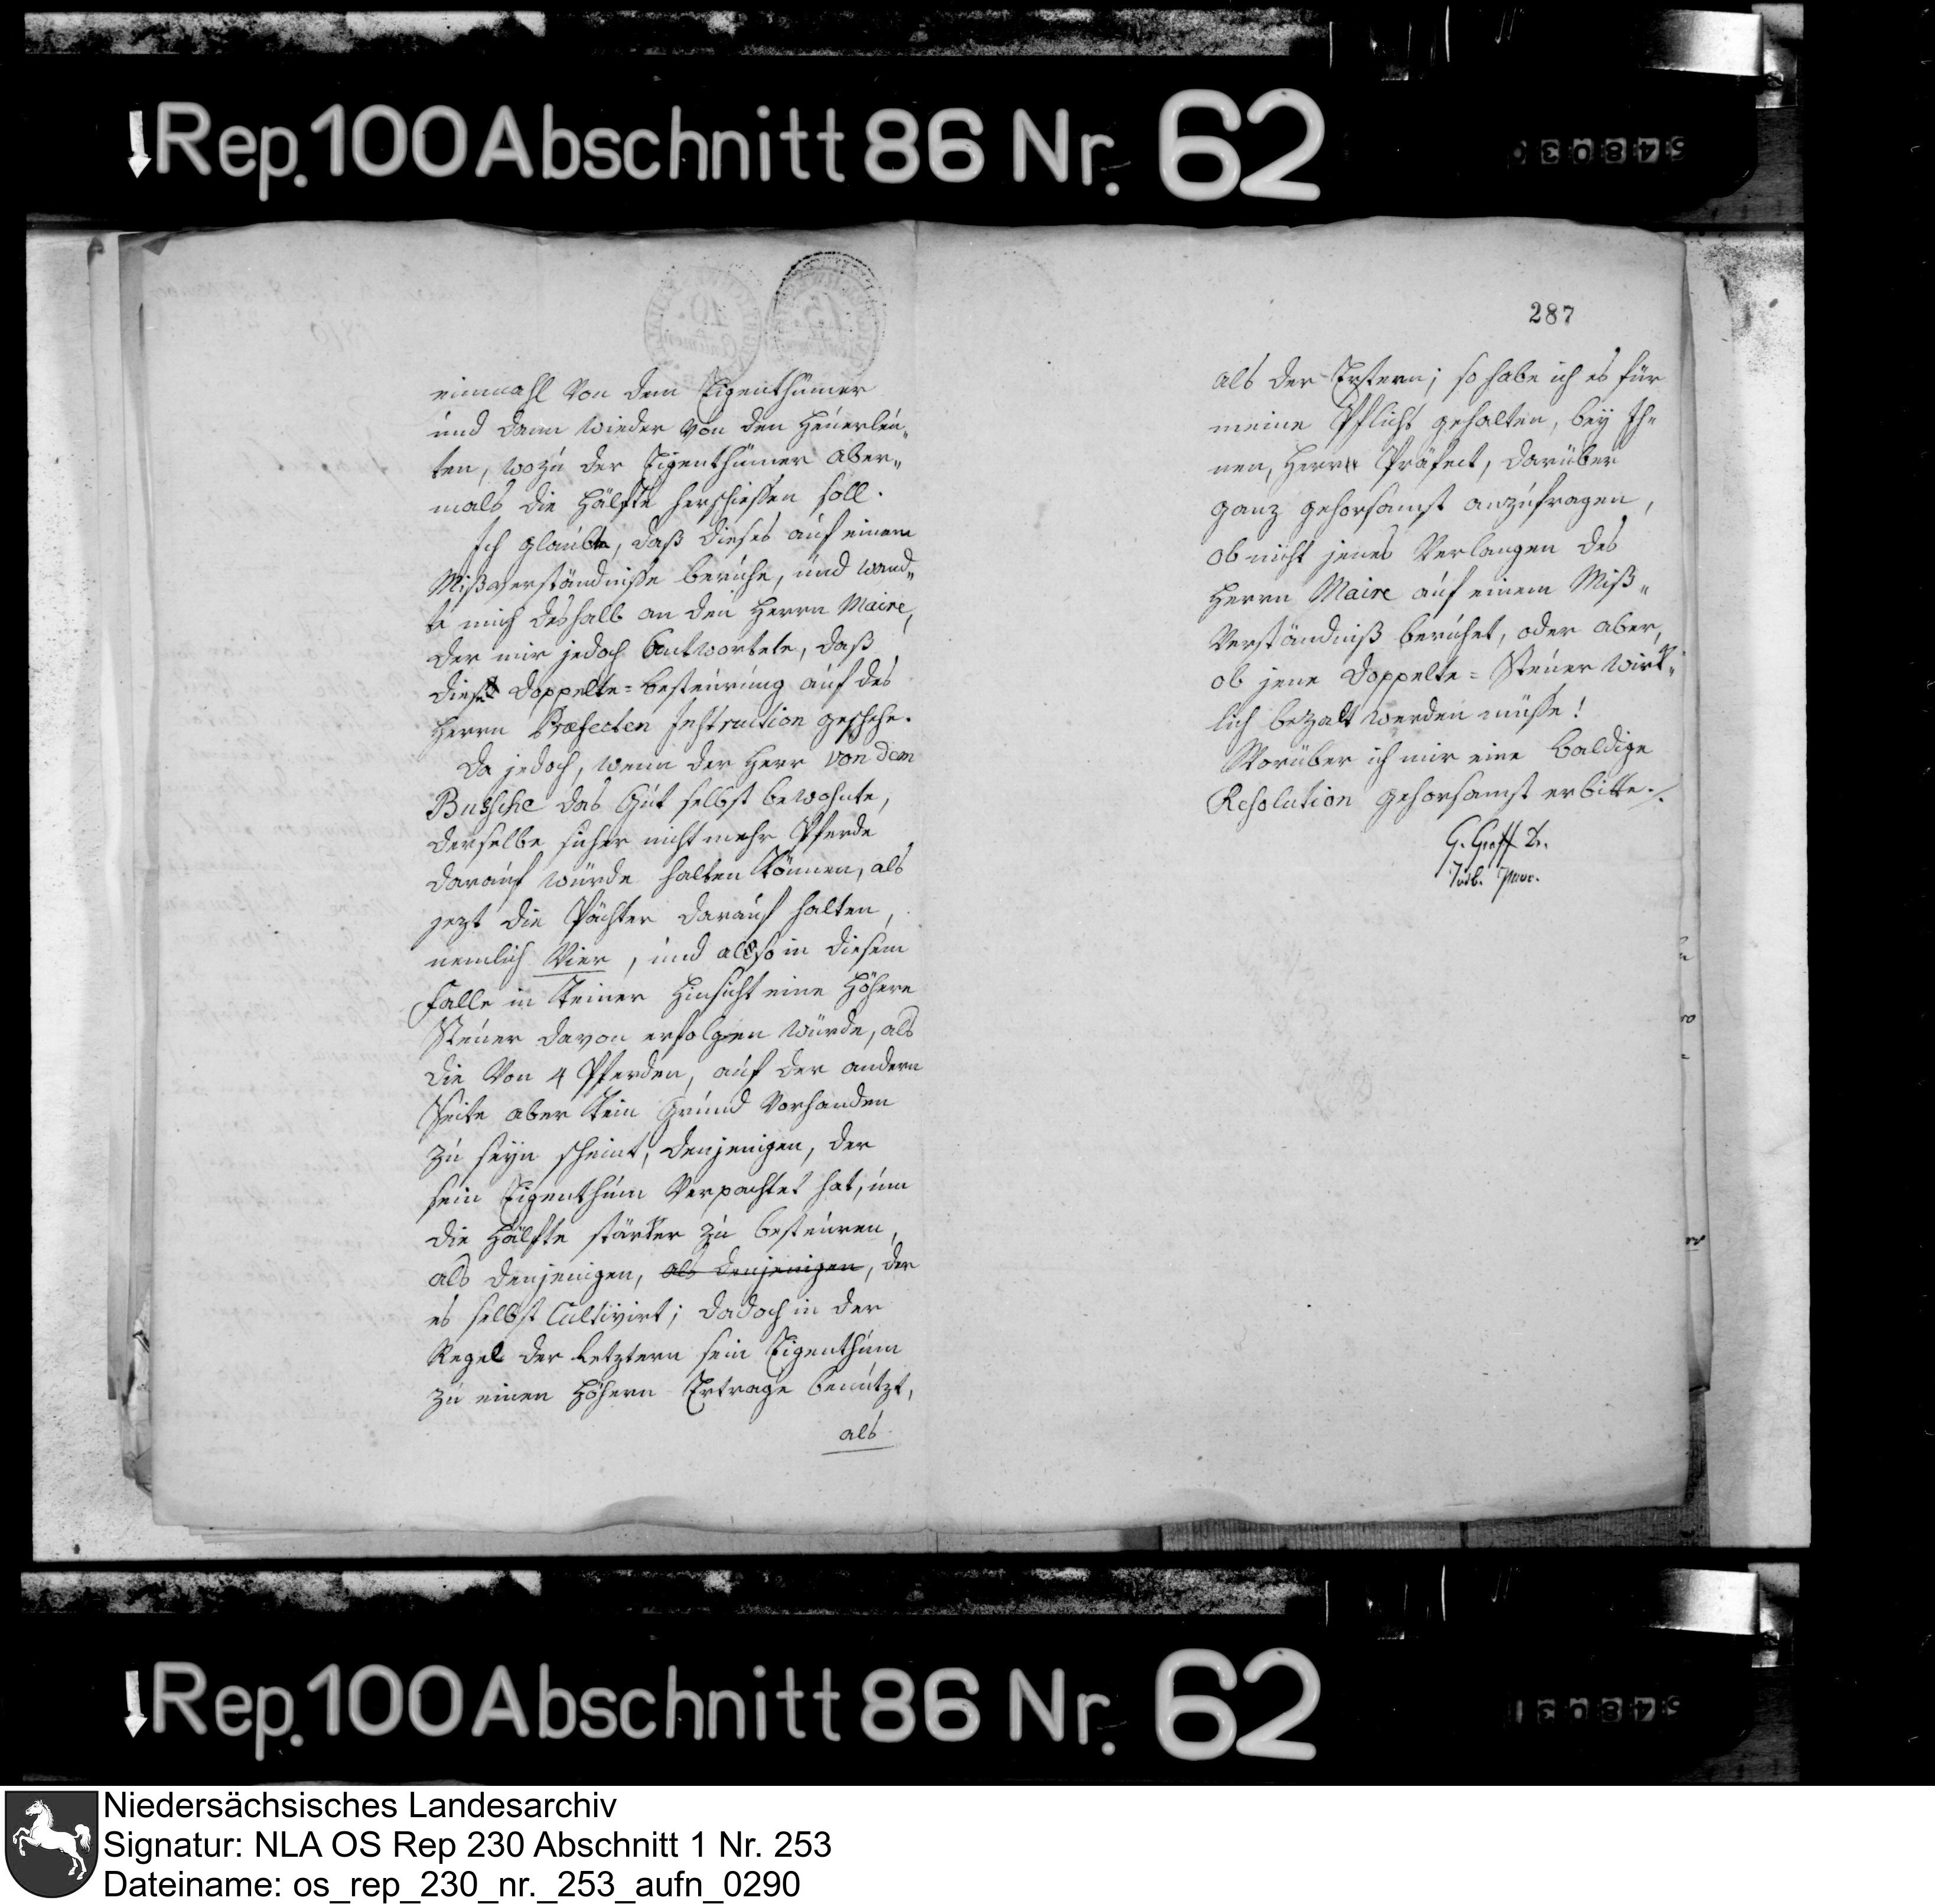 Rep. 100 Abschnitt 86 Nr. 62
einmahl von dem Eigenthümer
und dann wieder von den Heuerleu„
ten, wozu der Eigenthümer aber„
mals die Hälfte herschiessen soll.
Ich glaubte, daß dieses auf einem
Mißverständnisse beruhe, und wand„
te mich deshalb an den Herrn Maire,
der mir jedoch antwortete, daß
diese Doppelte=besteurung auf des
Herrn Præfecten Instruction geschehe.
Da jedoch, wenn der Herr von dem
Bussche das Gut selbst bewohnte,
derselbe sicher nicht mehr Pferde
darauf würde halten können, als
jezt die Pächter darauf halten,
nemlich Vier, und also in diesem
Falle in keiner Hinsicht eine Höhere
Steuer davon erfolgen würde, als
die von 4 Pferden, auf der andern
Seite aber kein Grund vorhanden
zu seyn scheint, denjenigen, der
sein Eigenthum verpachtet hat, um
die Hälfte stärker zu besteuren,
als denjenigen, als denjenigen, der
es selbst Cultivirt; da doch in der
Regel der Letztern sein Eigenthum
zu einen Höhern Ertrage benutzt,
als
287
als der Erstern; so habe ich es für
meine Pflicht gehalten, bey Ih„
nen, Herr Präfect, darüber
ganz gehorsamst anzufragen,
ob nicht jenes Verlangen des
Herrn Maire auf einem Miß„
Verständniß beruhet, oder aber,
ob jene Doppelte=Steuer wirk„
lich bezalt werden müsse!
Worüber ich mir eine baldige
Resolution gehorsamst erbitte./.
G. Graff Dr.
Rep. 100 Abschnitt 86 Nr. 62
Niedersächsisches Landesarchiv
Signatur: NLA OS Rep 230 Abschnitt 1 Nr. 253
Dateiname: os_rep_230_nr._253_aufn_0290